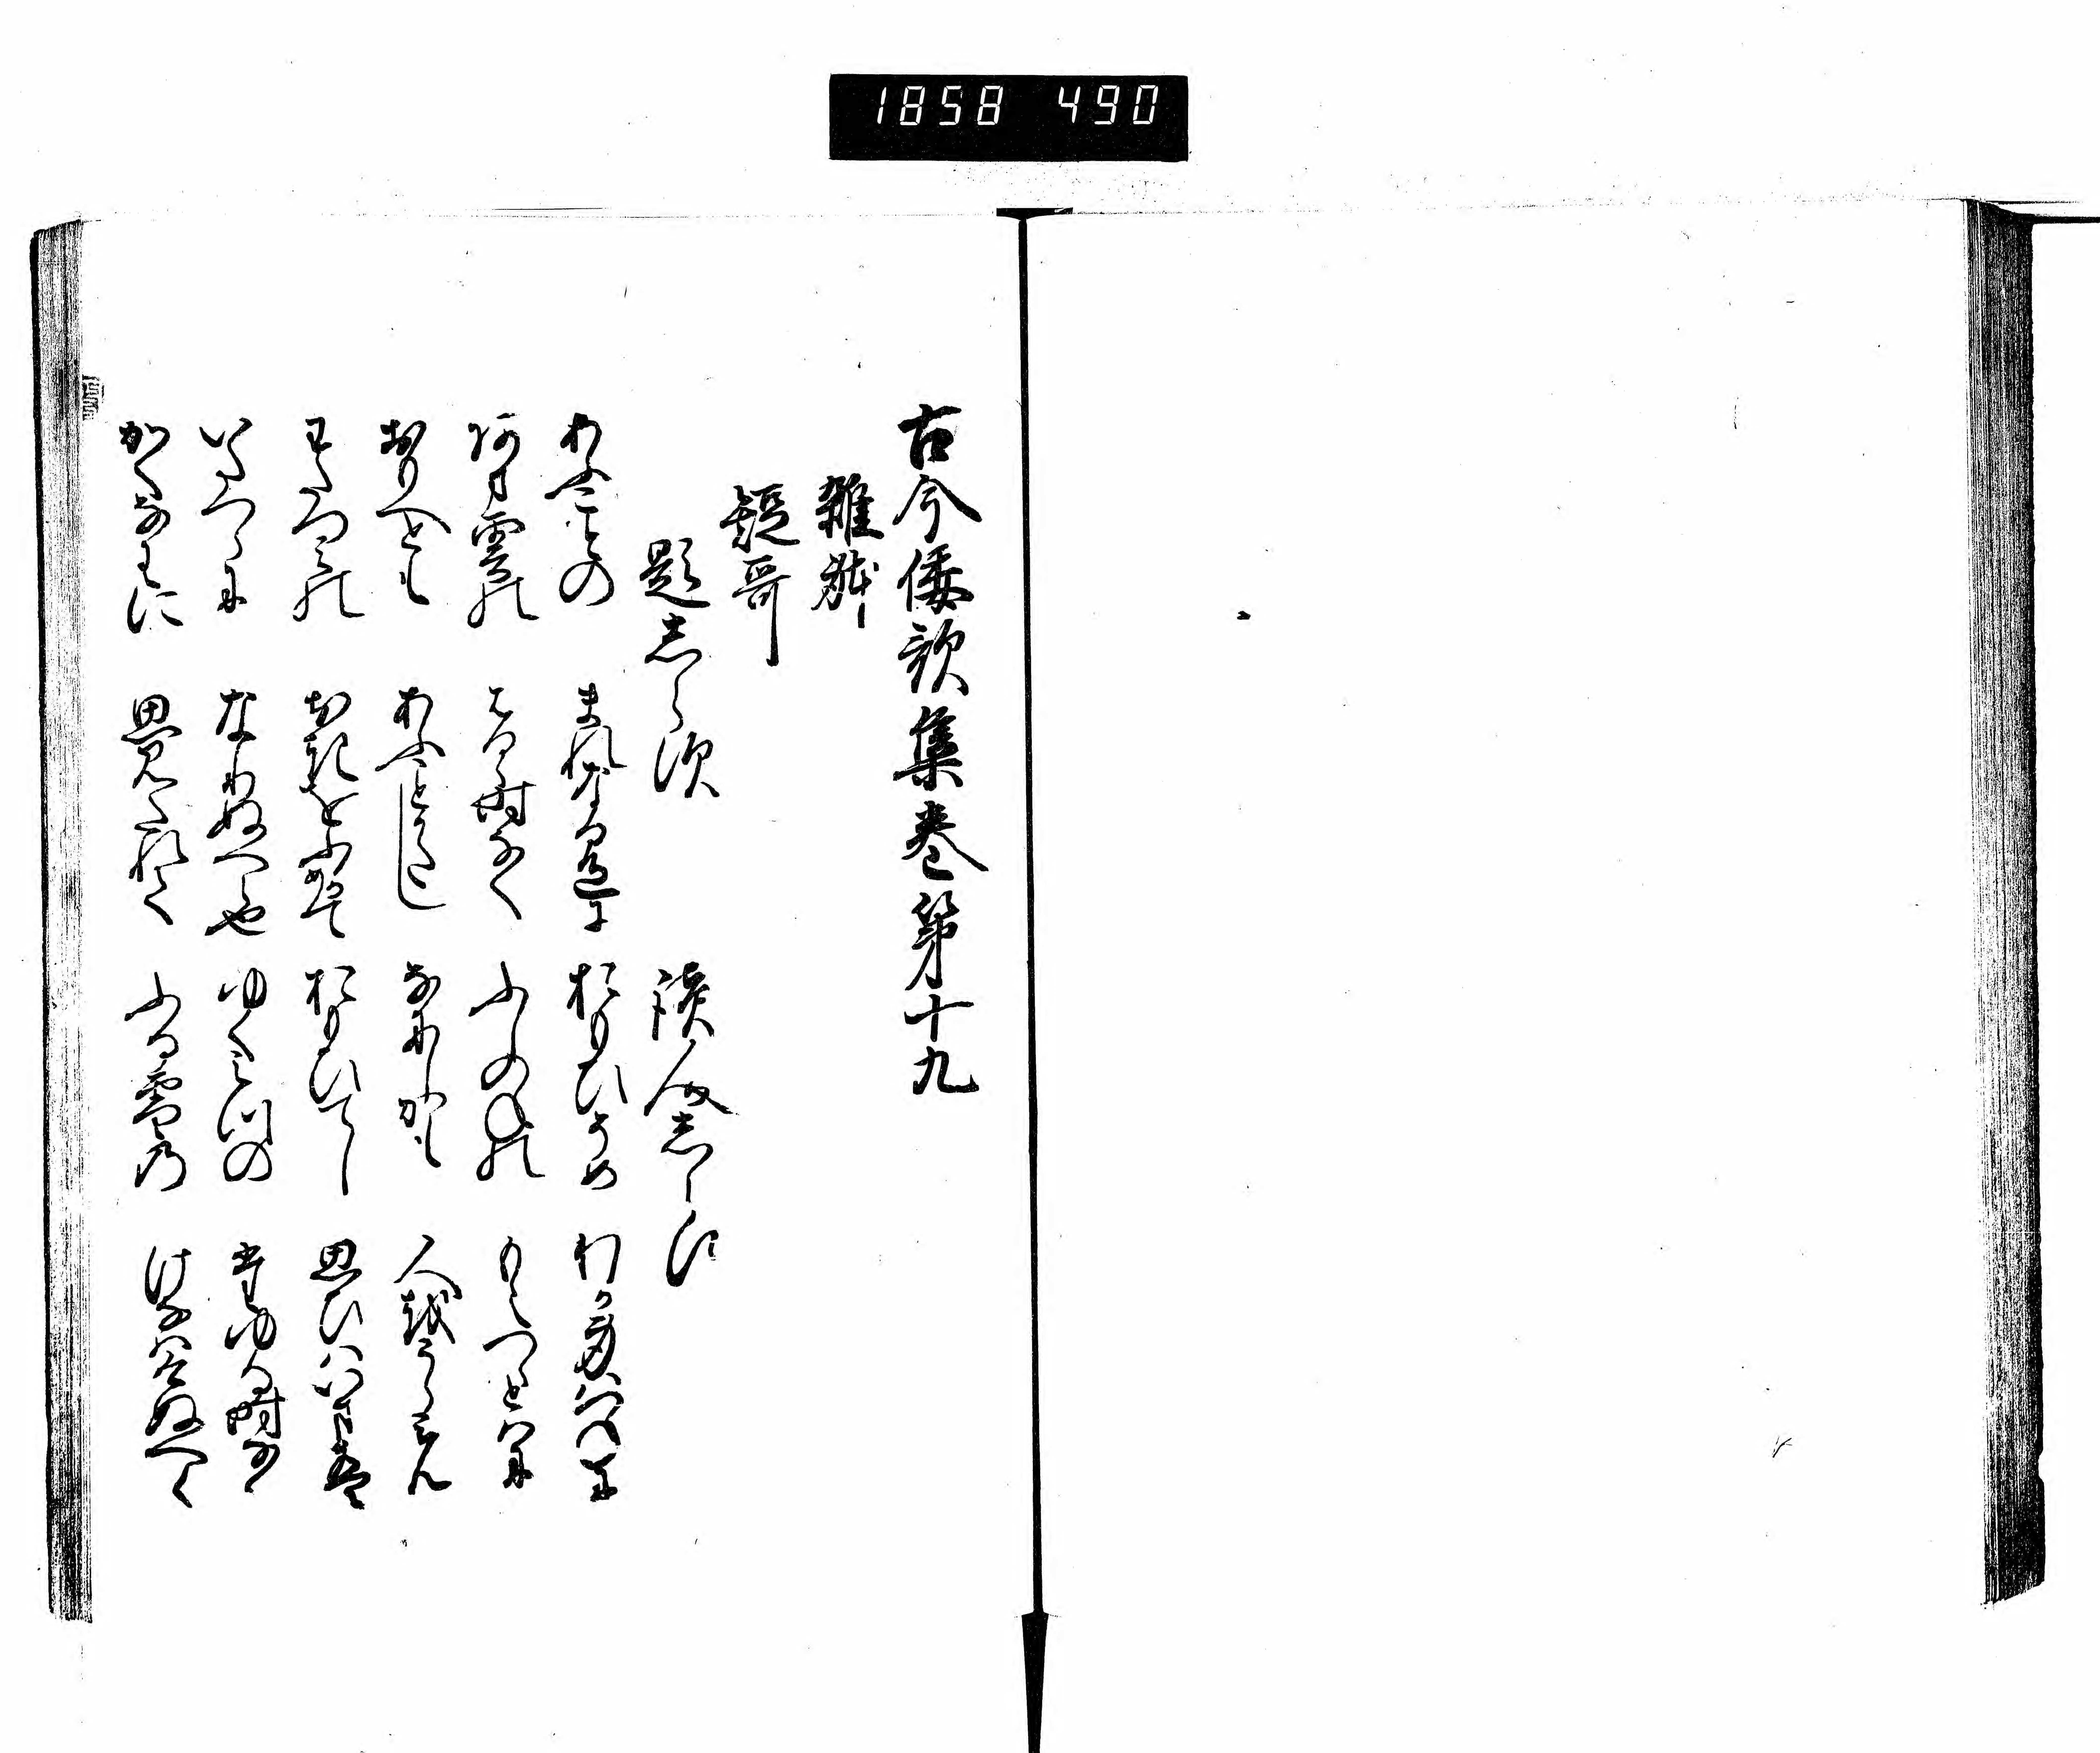 1858 490
古今倭歌集巻第十九
雑躰
短哥
題志らす 読人志らす
あふことの まれなる色に おもひそめ わか身はつねに
あま雲の はるゝ時なく ふしのねの もえつゝとはに
おもへとも あふことかたし なにしかも 人をうらみん
わたつみの おきをふかめて おもひてし 思ひはいまは
いたつらに なりぬへら也 ゆく水の たゆる時なく
かくなわに 思みたれて ふる雪の けなはけぬへく